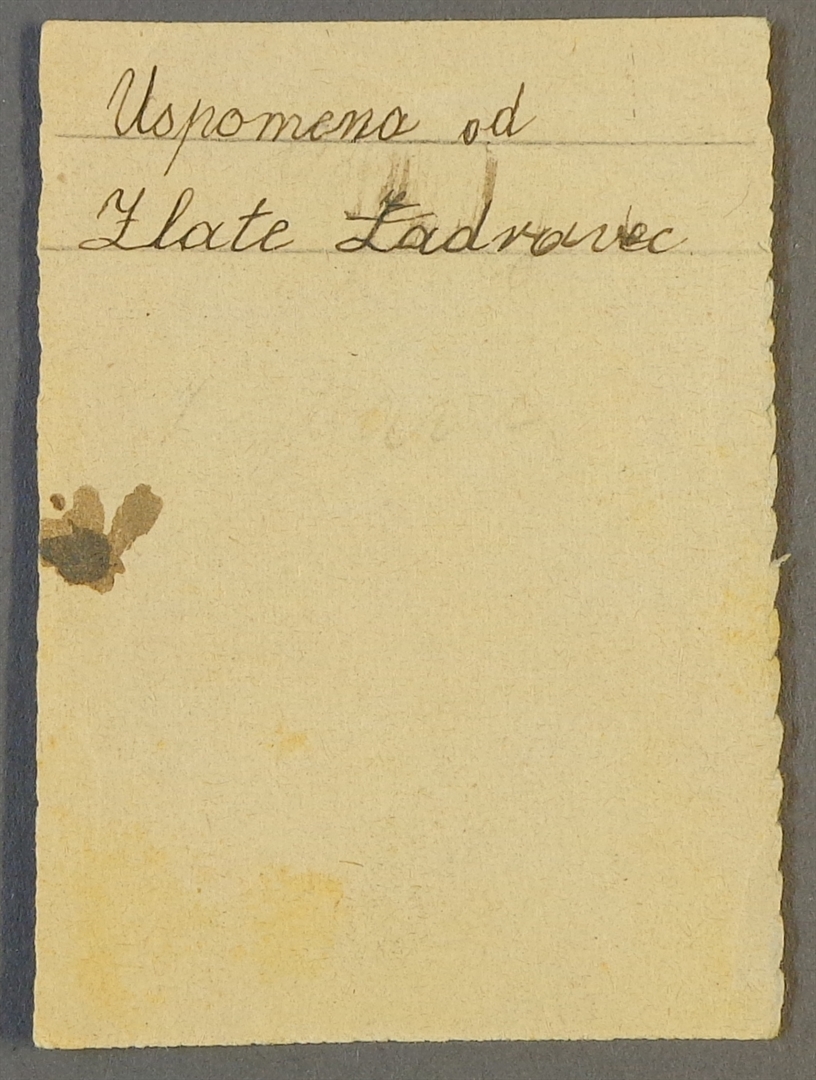 Uspomena od
Zlate Zadravec